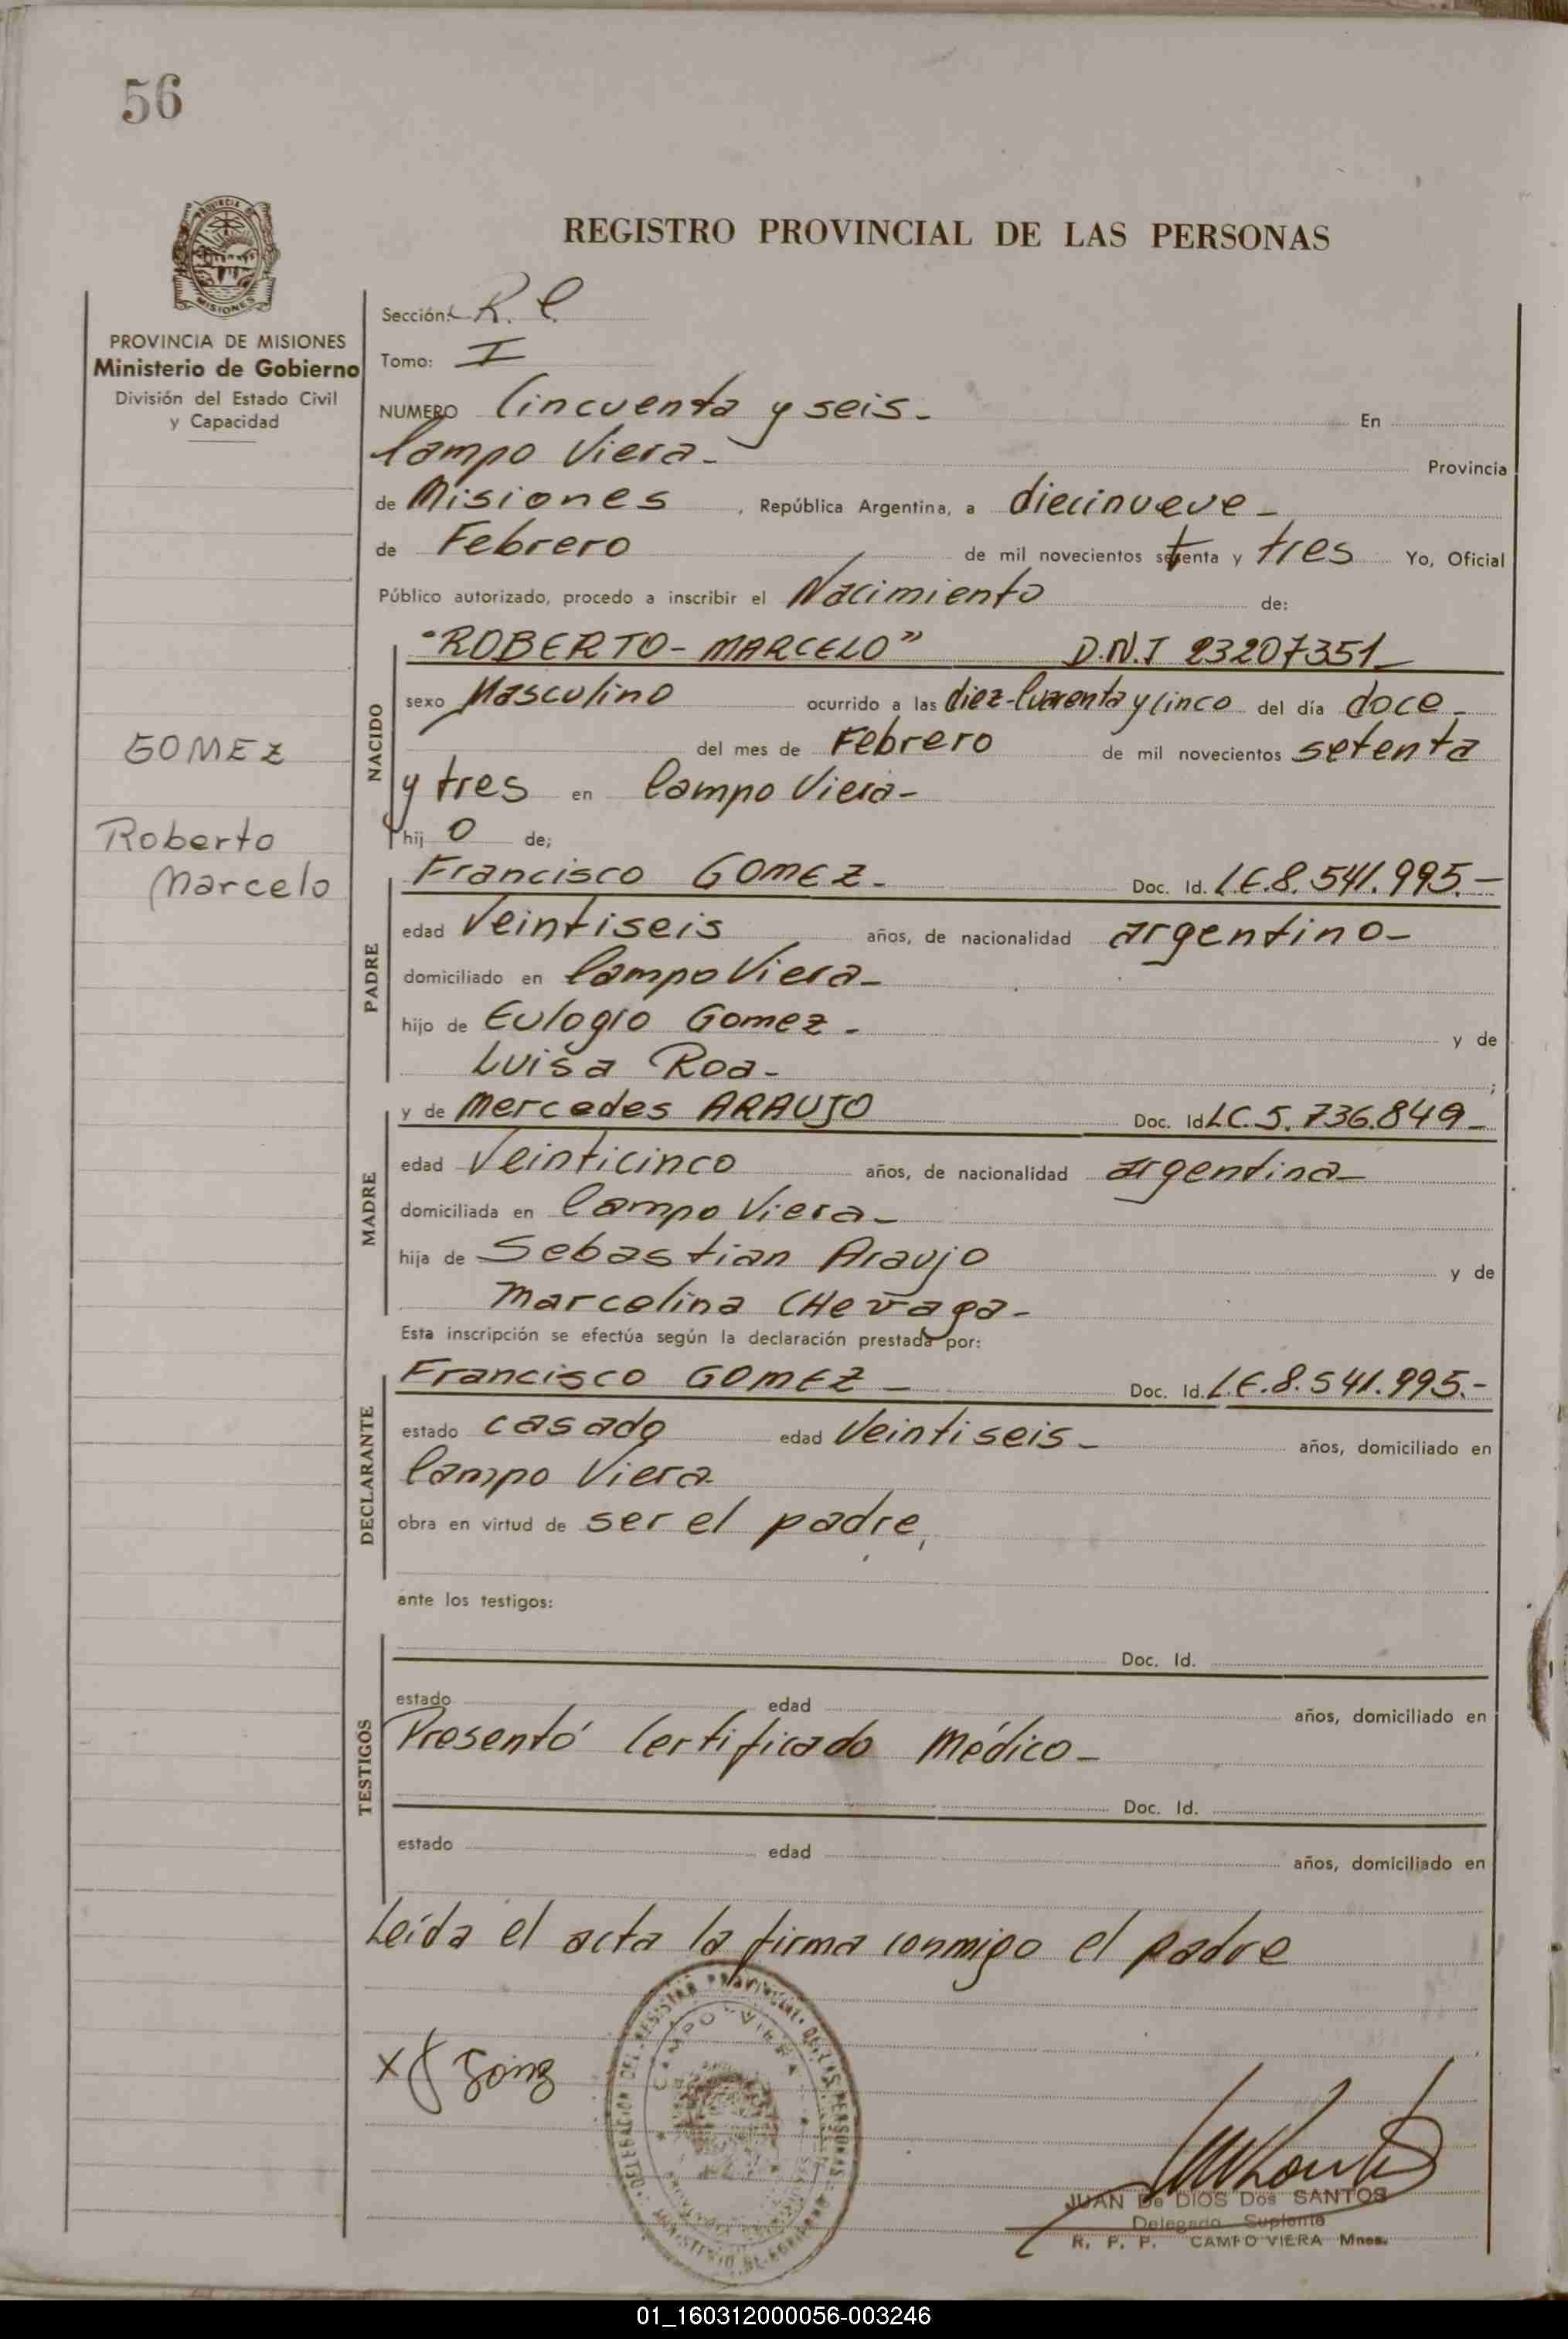 56
REGISTRO PROVINCIAL DE LAS PERSONAS
PROVINCIA DE MISIONES
MISIONES
PROVINCIA DE MISIONES
Ministerio de Gobierno
División del Estado Civil
y Capacidad
GOMEZ
Roberto
Marcelo
Sección: R. C.
Tomo: I
NUMERO Cincuenta y seis. En
Campo Viera. Provincia
de Misiones, República Argentina, a diecinueve
de Febrero de mil novecientos setenta y tres Yo, Oficial
Público autorizado, procedo a inscribir el Nacimiento de:
NACIDO
"ROBERTO-MARCELO" D.N.I 23207351
sexo Masculino ocurrido a las diez-Cuarenta y Cinco del día doce
del mes de Febrero de mil novecientos setenta
y tres en Campo Viera-
hij o de;
PADRE
Francisco GOMEZ. Doc. Id. L.E.8.541.995.-
edad Veintiseis años, de nacionalidad argentino-
domiciliado en Campo Viera-
hijo de Eulogio Gomez. y de
Luisa Roa- ;
MADRE
y de Mercedes ARAUJO Doc. Id L.C.5.736.849-
edad Veinticinco años, de nacionalidad argentina-
domiciliada en Campo Viera-
hija de Sebastian Araujo y de
Marcelina
Esta inscripción se efectúa según la declaración prestada por:
DECLARANTE
Francisco GOMEZ Doc. Id. L.E.8.541.995.-
estado casado edad Veintiseis- años, domiciliado en
Campo Viera
obra en virtud de ser el padre,
ante los testigos:
TESTIGOS
Doc. Id.
estado edad años, domiciliado en
Presentó Certificado Médico-
Doc. Id.
estado edad años, domiciliado en
Leída el acta la firma conmigo el padre
DELEGACION DEL REGISTRO PROVINCIAL DE LAS PERSONAS
CAMPO VIERA
MINISTERIO DE GOBIERNO
JUAN De DIOS Dos SANTOS
Delegado Suplente
R. P. P. CAMPO VIERA Mnes.
01_160312000056-003246